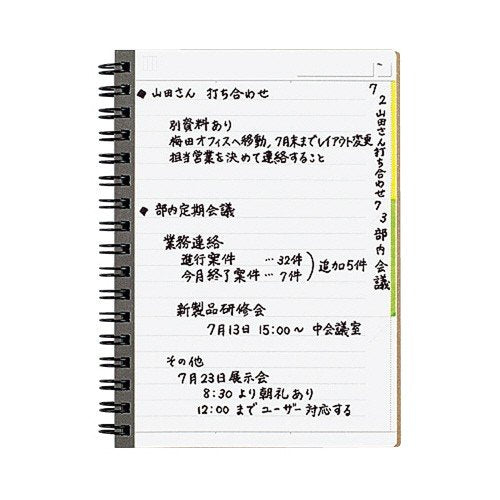 ◆ 山田さん 打ち合わせ
別資料あり
梅田オフィスへ移動。7月末までレイアウト変更
担当営業を決めて連絡すること
◆ 部内定期会議
業務連絡
進行案件 …32件
今月終了案件 …7件 ) 追加5件
新製品研修会
7月13日 15:00～ 中会議室
その他
7月23日展示会
8:30 より朝礼あり
12:00 までユーザー対応する
7
2 山田さん打ち合わせ
7
3 部内会議